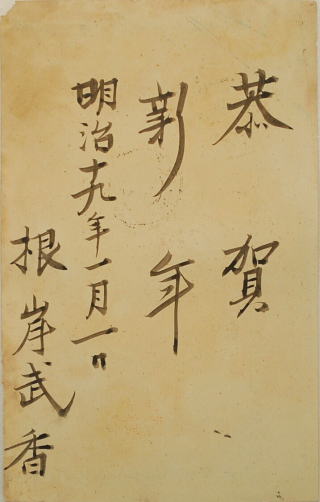 恭賀
新年
明治十九年一月一日
根岸武香